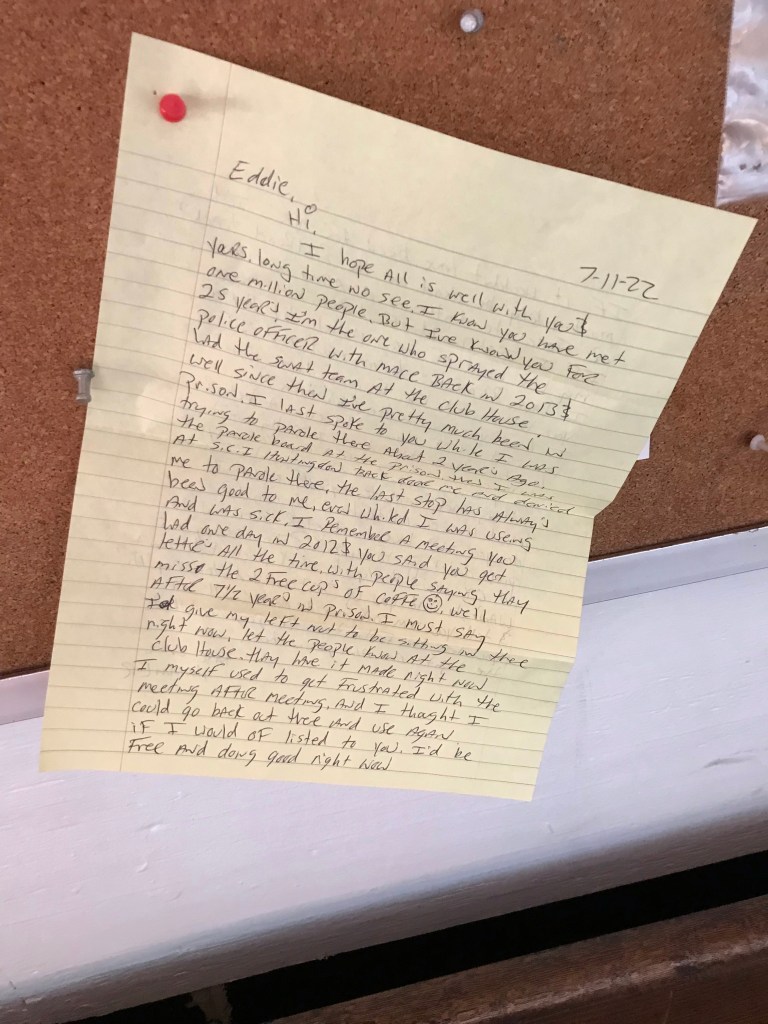 Eddie,
Hi,
7-11-22
I hope All is well with you &
yours. long time no see. I know you have met
one million people. But I've known you For
25 years. I'm the one who sprayed the
police officer with mace Back in 2013 &
had the swat team At the club House.
well since then I've pretty much been in
Prison. I last spoke to you while I was
trying to parole there About 2 year's Ago.
the parole board At the prison that I was
At S.C.I Huntingdon back and denied
me to parole there, the last stop has Alway's
been good to me, even I was useing
And was sick. I Remember A meeting you
had one day in 2012 & you said you get
letter's All the time, with people staying thay
miss the 2 Free cup's of Coffe ☺ well
AFter 7 1/2 year's in prison. I must say
I'd give my left nut to be sitting in thee
right now, let the people know At the
club House. thay have it made right now
I myself used to get Frustrated with the
meeting AFter meeting. And I thought I
could go back out tree and use AgAin
iF I would oF listed to you. I'd be
Free And doing good right now